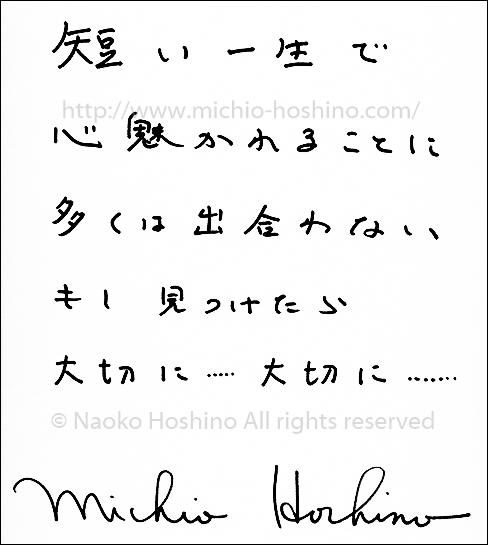 短い一生で
http://www.michio-hoshino.com/
心魅かれることに
多くは出合わない
もし 見つけたら
大切に…… 大切に………
© Naoko Hoshino All rights reserved
Michio Hoshino